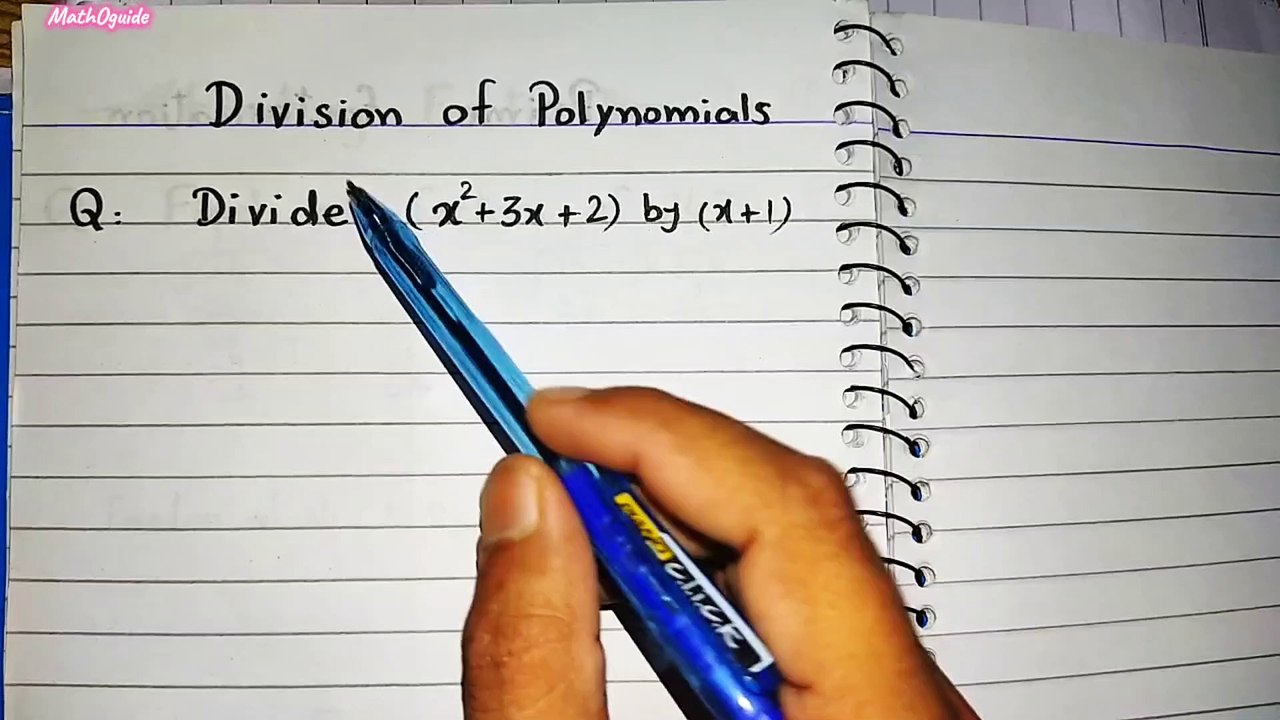 MathOguide
Division of Polynomials
Q: Divide (x²+3x+2) by (x+1)
CLICK